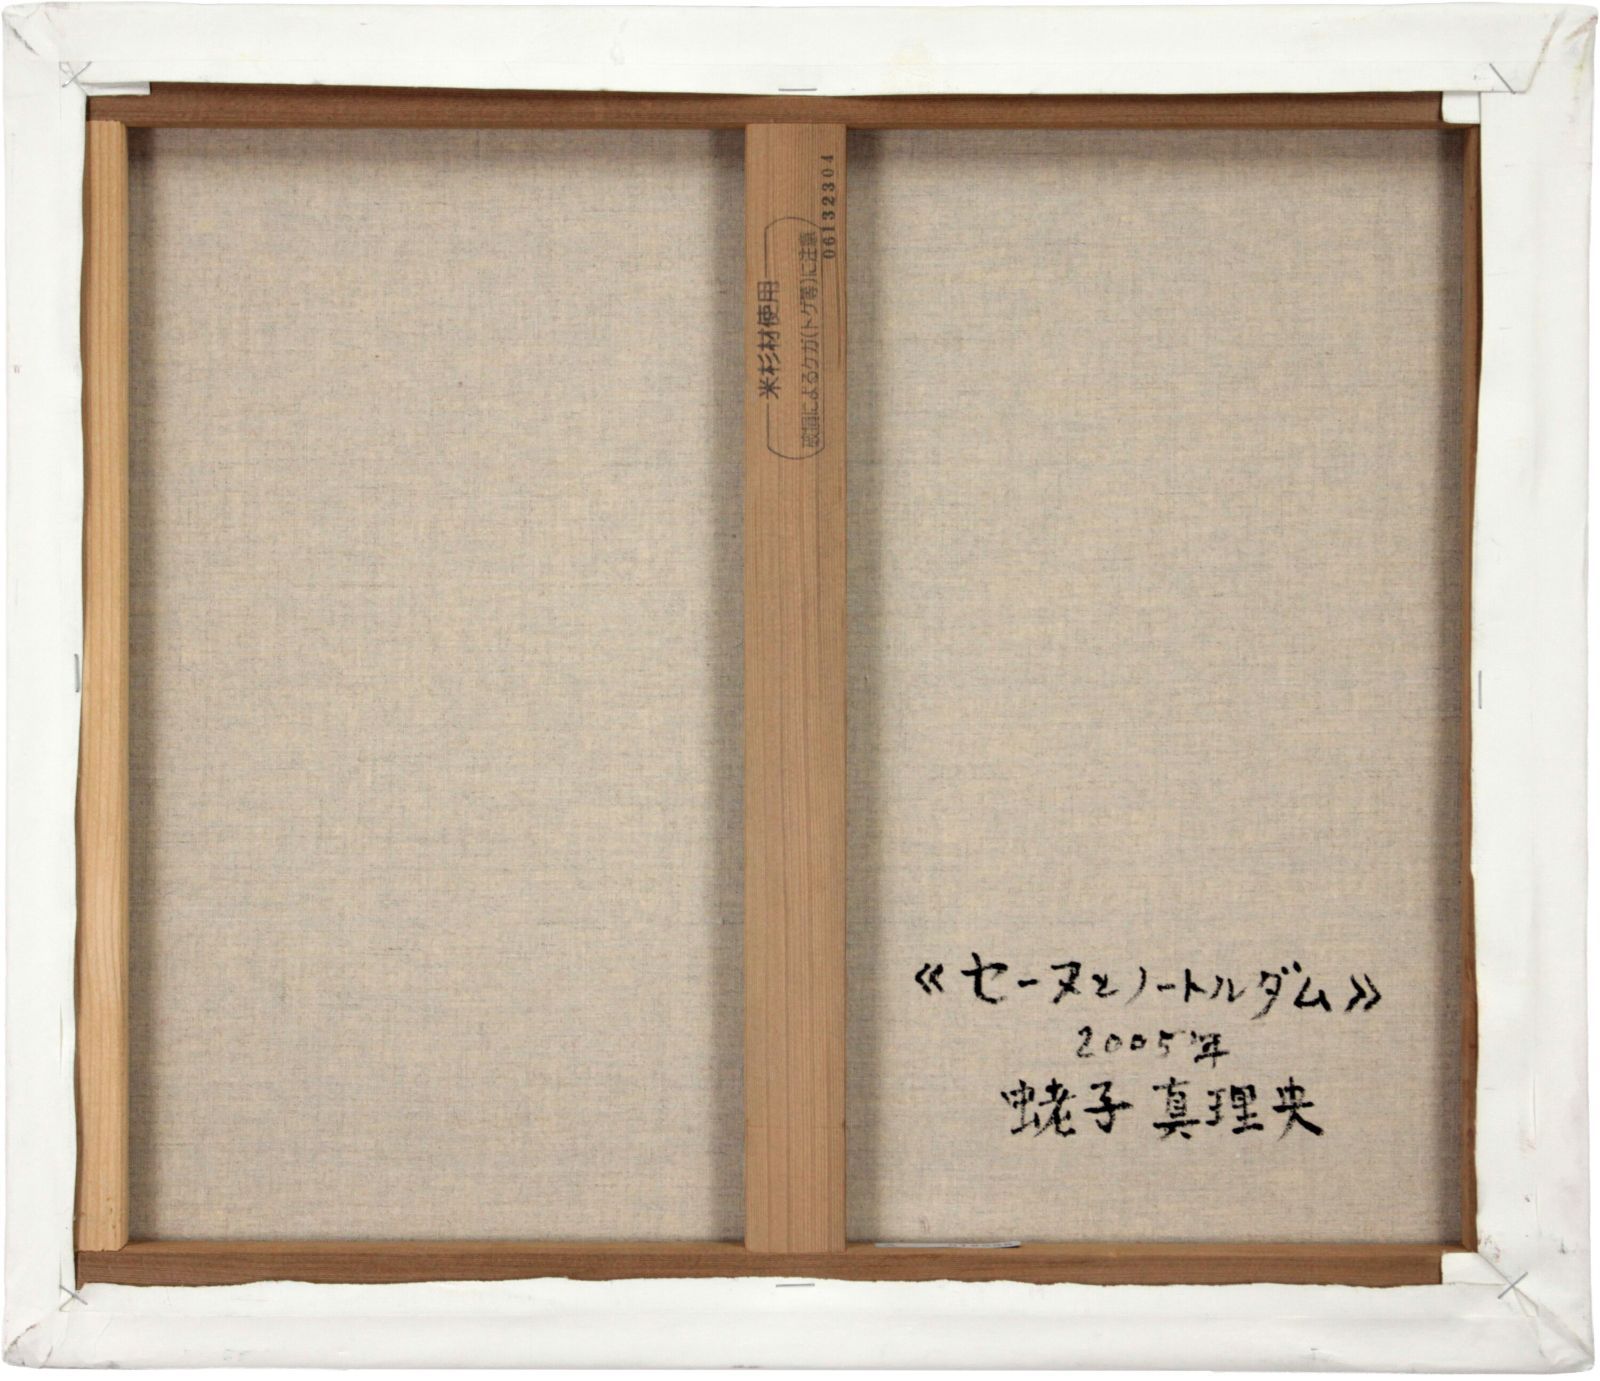 米杉材使用
破損によるケガ(トゲ等)に注意
06132304
《セーヌとノートルダム》
2005年
蛯子 真理央